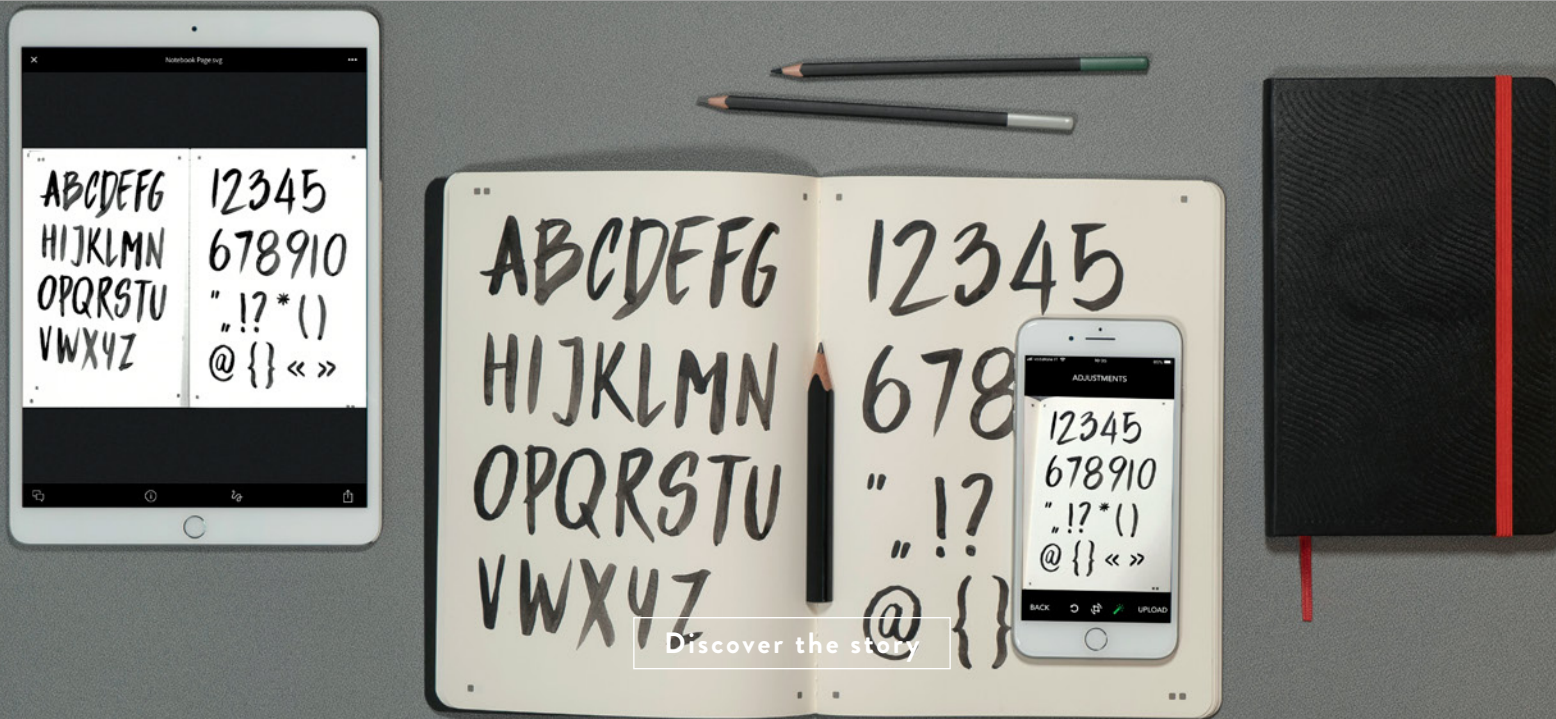 Notebook Page.svg
ABCDEFG
HIJKLMN
OPQRSTU
VWXYZ
12345
678910
" !? * ( )
„
@ { } « »
ABCDEFG
HIJKLMN
OPQRSTU
VWXYZ
12345
678
" !?
„
@ { }
ADJUSTMENTS
12345
678910
" !? * ( )
„
@ { } « »
BACK UPLOAD
Discover the story